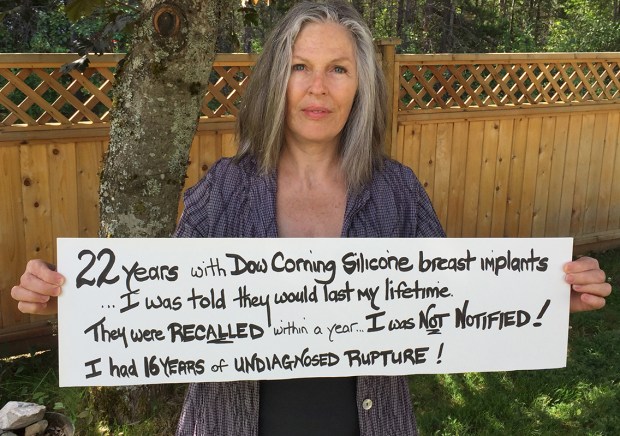 22 years with Dow Corning Silicone breast implants
...I was told they would last my lifetime.
They were RECALLED within a year... I was NOT NOTIFIED!
I had 16 YEARS of UNDIAGNOSED RUPTURE!